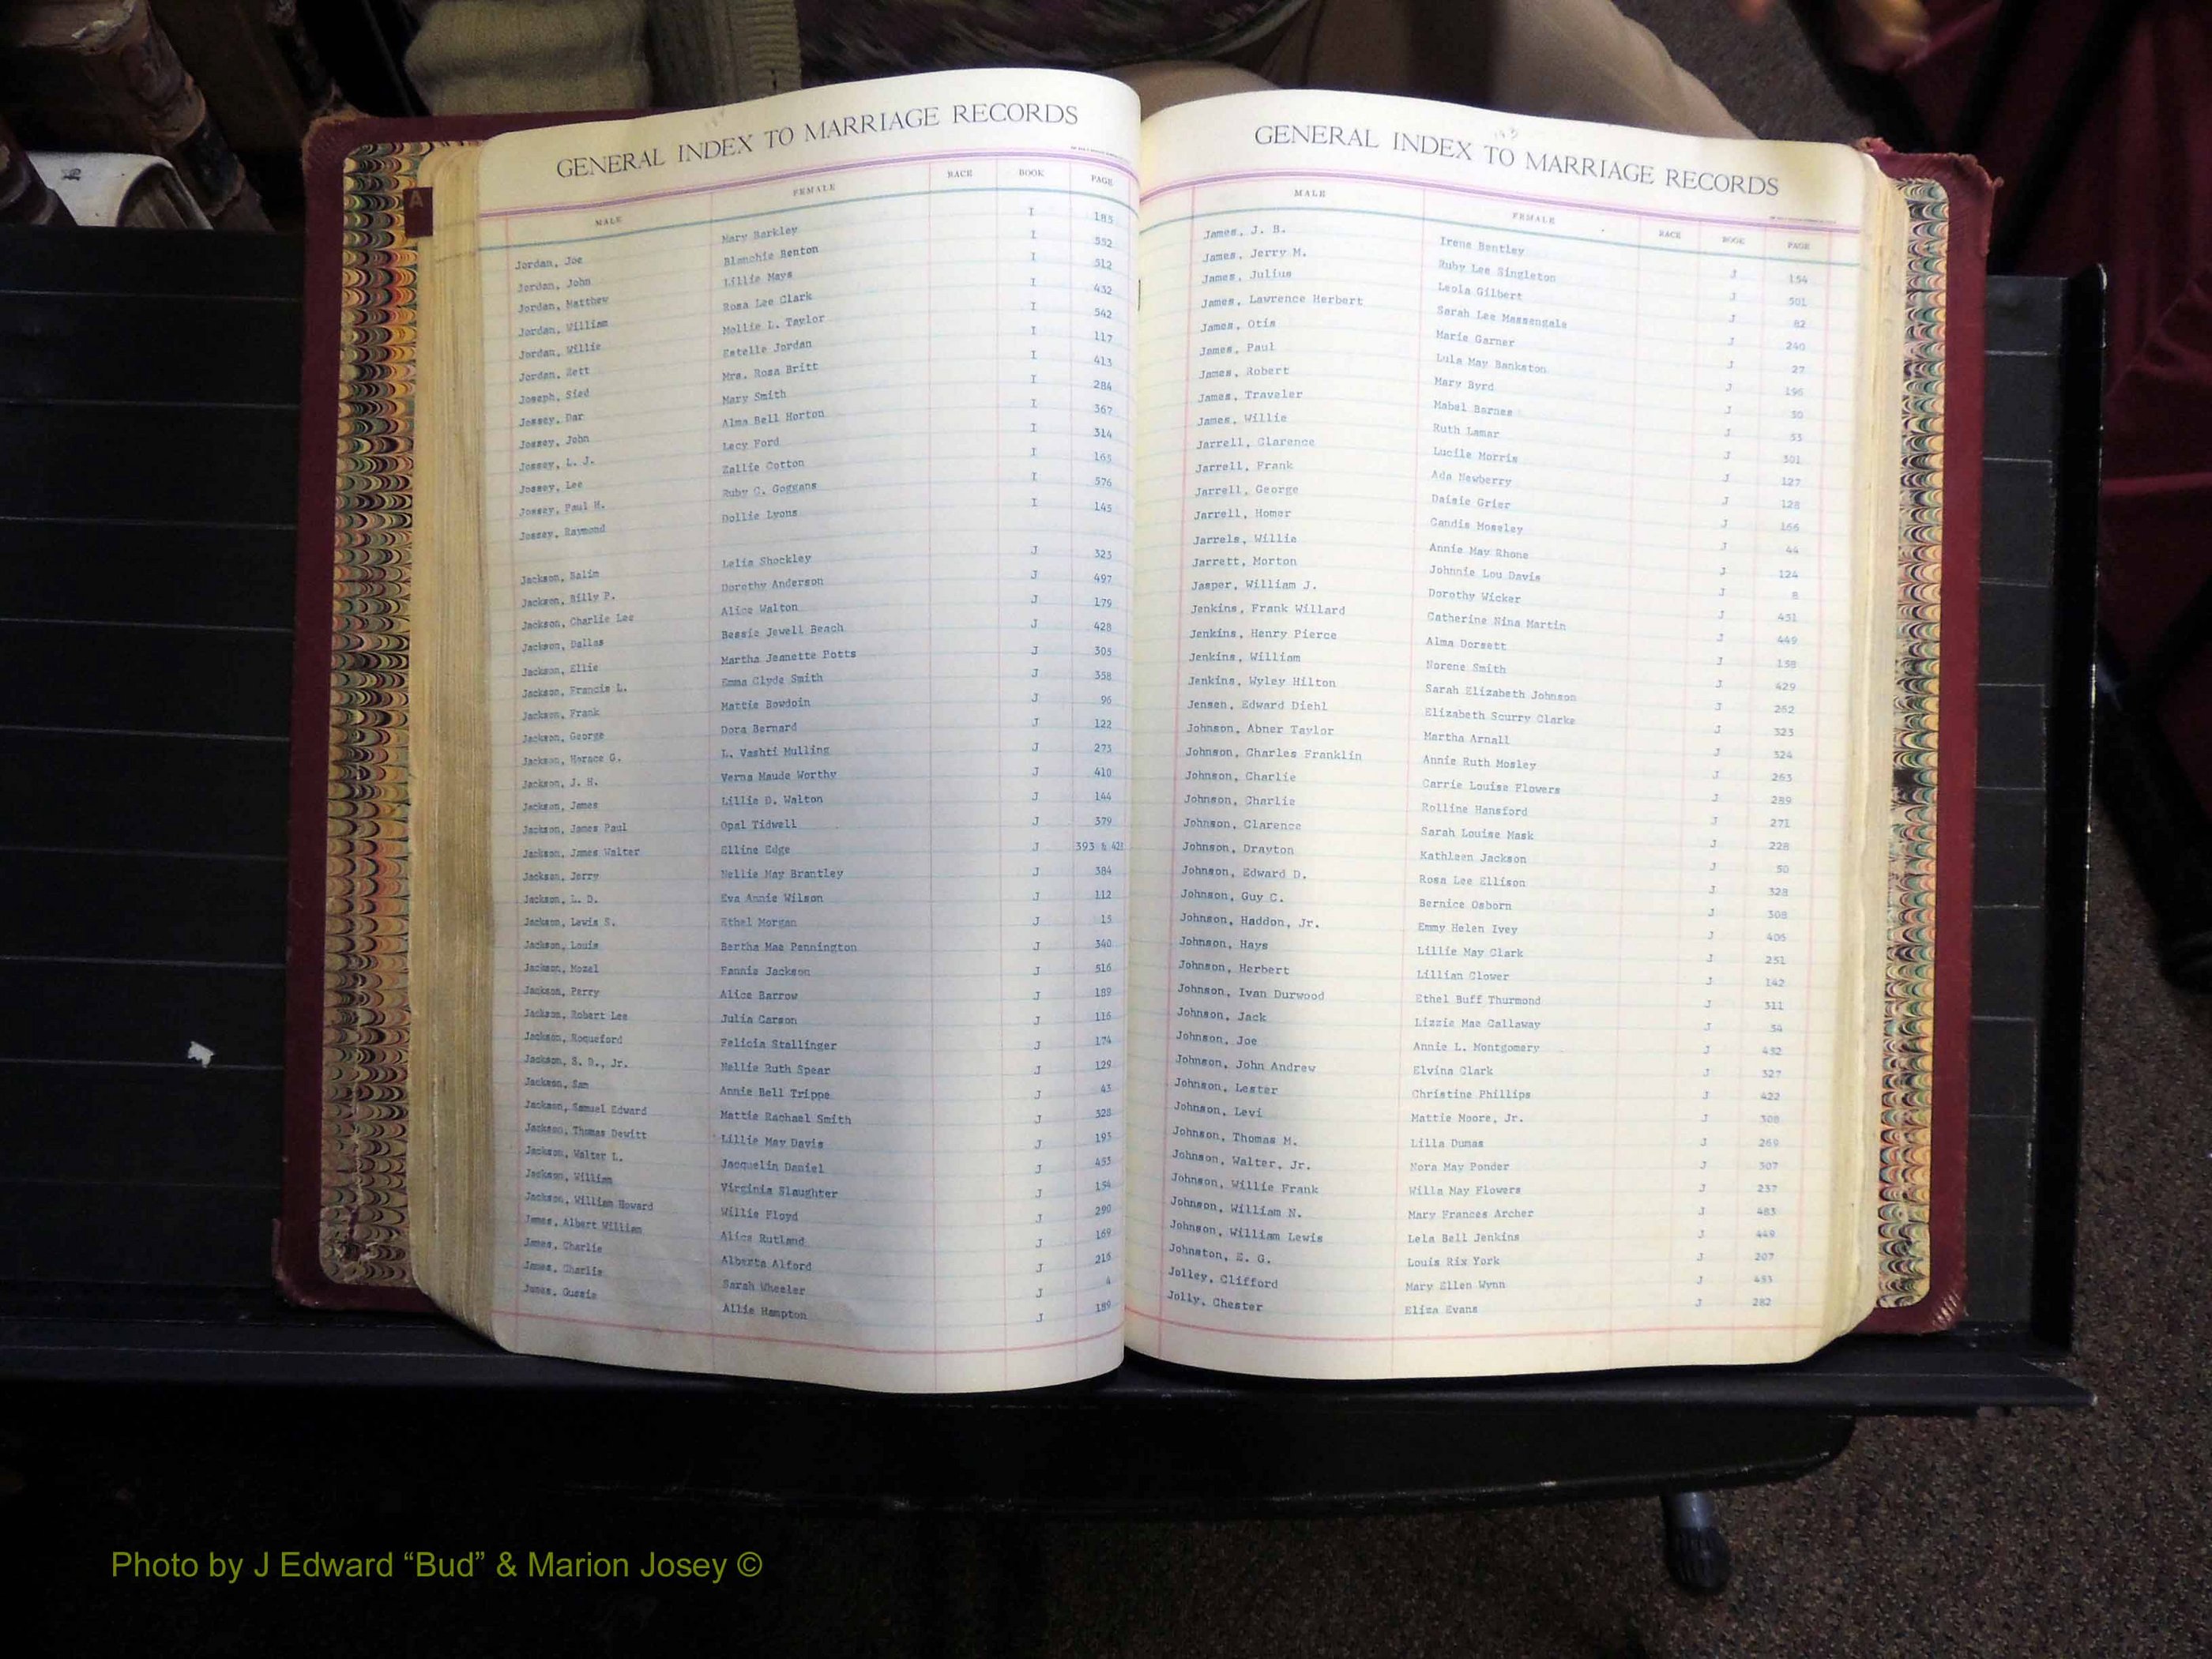 GENERAL INDEX TO MARRIAGE RECORDS
MALE FEMALE RACE BOOK PAGE
Jordan, Joe Mary Barkley I 185
Jordan, John Blanchie Benton I 552
Jordan, Matthew Lillie Mays I 512
Jordan, William Rosa Lee Clark I 432
Jordan, Willie Mollie L. Taylor I 542
Jordan, Zett Estelle Jordan I 117
Joseph, Sied Mrs. Rosa Britt I 413
Jossey, Dar Mary Smith I 284
Jossey, John Alma Bell Horton I 367
Jossey, L. J. Lecy Ford I 314
Jossey, Lee Zallie Cotton I 165
Jossey, Paul H. Ruby C. Goggans I 576
Jossey, Raymond Dollie Lyons I 145
Jackson, Balim Lelia Shockley J 323
Jackson, Billy P. Dorothy Anderson J 497
Jackson, Charlie Lee Alice Walton J 179
Jackson, Dallas Bessie Jewell Beach J 428
Jackson, Ellie Martha Jeanette Potts J 305
Jackson, Francis L. Emma Clyde Smith J 358
Jackson, Frank Mattie Bowdoin J 96
Jackson, George Dora Bernard J 122
Jackson, Horace G. L. Vashti Mulling J 273
Jackson, J. H. Verna Maude Worthy J 410
Jackson, James Lillie D. Walton J 144
Jackson, James Paul Opal Tidwell J 379
Jackson, James Walter Elline Edge J 393 & 421
Jackson, Jerry Nellie May Brantley J 384
Jackson, L. D. Eva Annie Wilson J 112
Jackson, Lewis S. Ethel Morgan J 15
Jackson, Louis Bertha Mae Pennington J 340
Jackson, Mozel Fannie Jackson J 516
Jackson, Perry Alice Barrow J 189
Jackson, Robert Lee Julia Carson J 116
Jackson, Roqueford Felicia Stallinger J 174
Jackson, S. B., Jr. Nellie Ruth Spear J 129
Jackson, Sam Annie Bell Trippe J 43
Jackson, Samuel Edward Mattie Rachael Smith J 328
Jackson, Thomas Dewitt Lillie May Davis J 193
Jackson, Walter L. Jacquelin Daniel J 453
Jackson, William Virginia Slaughter J 154
Jackson, William Howard Willie Floyd J 290
James, Albert William Alice Rutland J 169
James, Charlie Alberta Alford J 216
James, Charlie Sarah Wheeler J 4
James, Gussie Allie Hampton J 189
GENERAL INDEX TO MARRIAGE RECORDS
MALE FEMALE RACE BOOK PAGE
James, J. B. Irene Bentley J 154
James, Jerry M. Ruby Lee Singleton J 501
James, Julius Leola Gilbert J 82
James, Lawrence Herbert Sarah Lee Massengale J 240
James, Otis Marie Garner J 27
James, Paul Lula May Bankston J 196
James, Robert Mary Byrd J 30
James, Traveler Mabel Barnes J 53
James, Willie Ruth Lamar J 301
Jarrell, Clarence Lucile Morris J 127
Jarrell, Frank Ada Newberry J 128
Jarrell, George Daisie Grier J 166
Jarrell, Homer Candis Moseley J 44
Jarrels, Willie Annie May Rhone J 124
Jarrett, Morton Johnnie Lou Davis J 8
Jasper, William J. Dorothy Wicker J 451
Jenkins, Frank Willard Catherine Nina Martin J 449
Jenkins, Henry Pierce Alma Dorsett J 138
Jenkins, William Norene Smith J 429
Jenkins, Wyley Hilton Sarah Elizabeth Johnson J 262
Jensen, Edward Diehl Elizabeth Scurry Clarke J 323
Johnson, Abner Taylor Martha Arnall J 324
Johnson, Charles Franklin Annie Ruth Mosley J 263
Johnson, Charlie Carrie Louise Flowers J 289
Johnson, Charlie Rolline Hansford J 271
Johnson, Clarence Sarah Louise Mask J 228
Johnson, Drayton Kathleen Jackson J 50
Johnson, Edward D. Rosa Lee Ellison J 328
Johnson, Guy C. Bernice Osborn J 308
Johnson, Haddon, Jr. Emmy Helen Ivey J 406
Johnson, Hays Lillie May Clark J 251
Johnson, Herbert Lillian Clower J 142
Johnson, Ivan Durwood Ethel Buff Thurmond J 311
Johnson, Jack Lizzie Mae Callaway J 54
Johnson, Joe Annie L. Montgomery J 452
Johnson, John Andrew Elvina Clark J 327
Johnson, Lester Christine Phillips J 422
Johnson, Levi Mattie Moore, Jr. J 308
Johnson, Thomas M. Lilla Dumas J 269
Johnson, Walter, Jr. Nora May Ponder J 307
Johnson, Willie Frank Willa May Flowers J 237
Johnson, William N. Mary Frances Archer J 483
Johnson, William Lewis Lela Bell Jenkins J 449
Johnston, E. G. Louis Rix York J 207
Jolley, Clifford Mary Ellen Wynn J 453
Jolly, Chester Eliza Evans J 282
A
Photo by J Edward “Bud” & Marion Josey ©